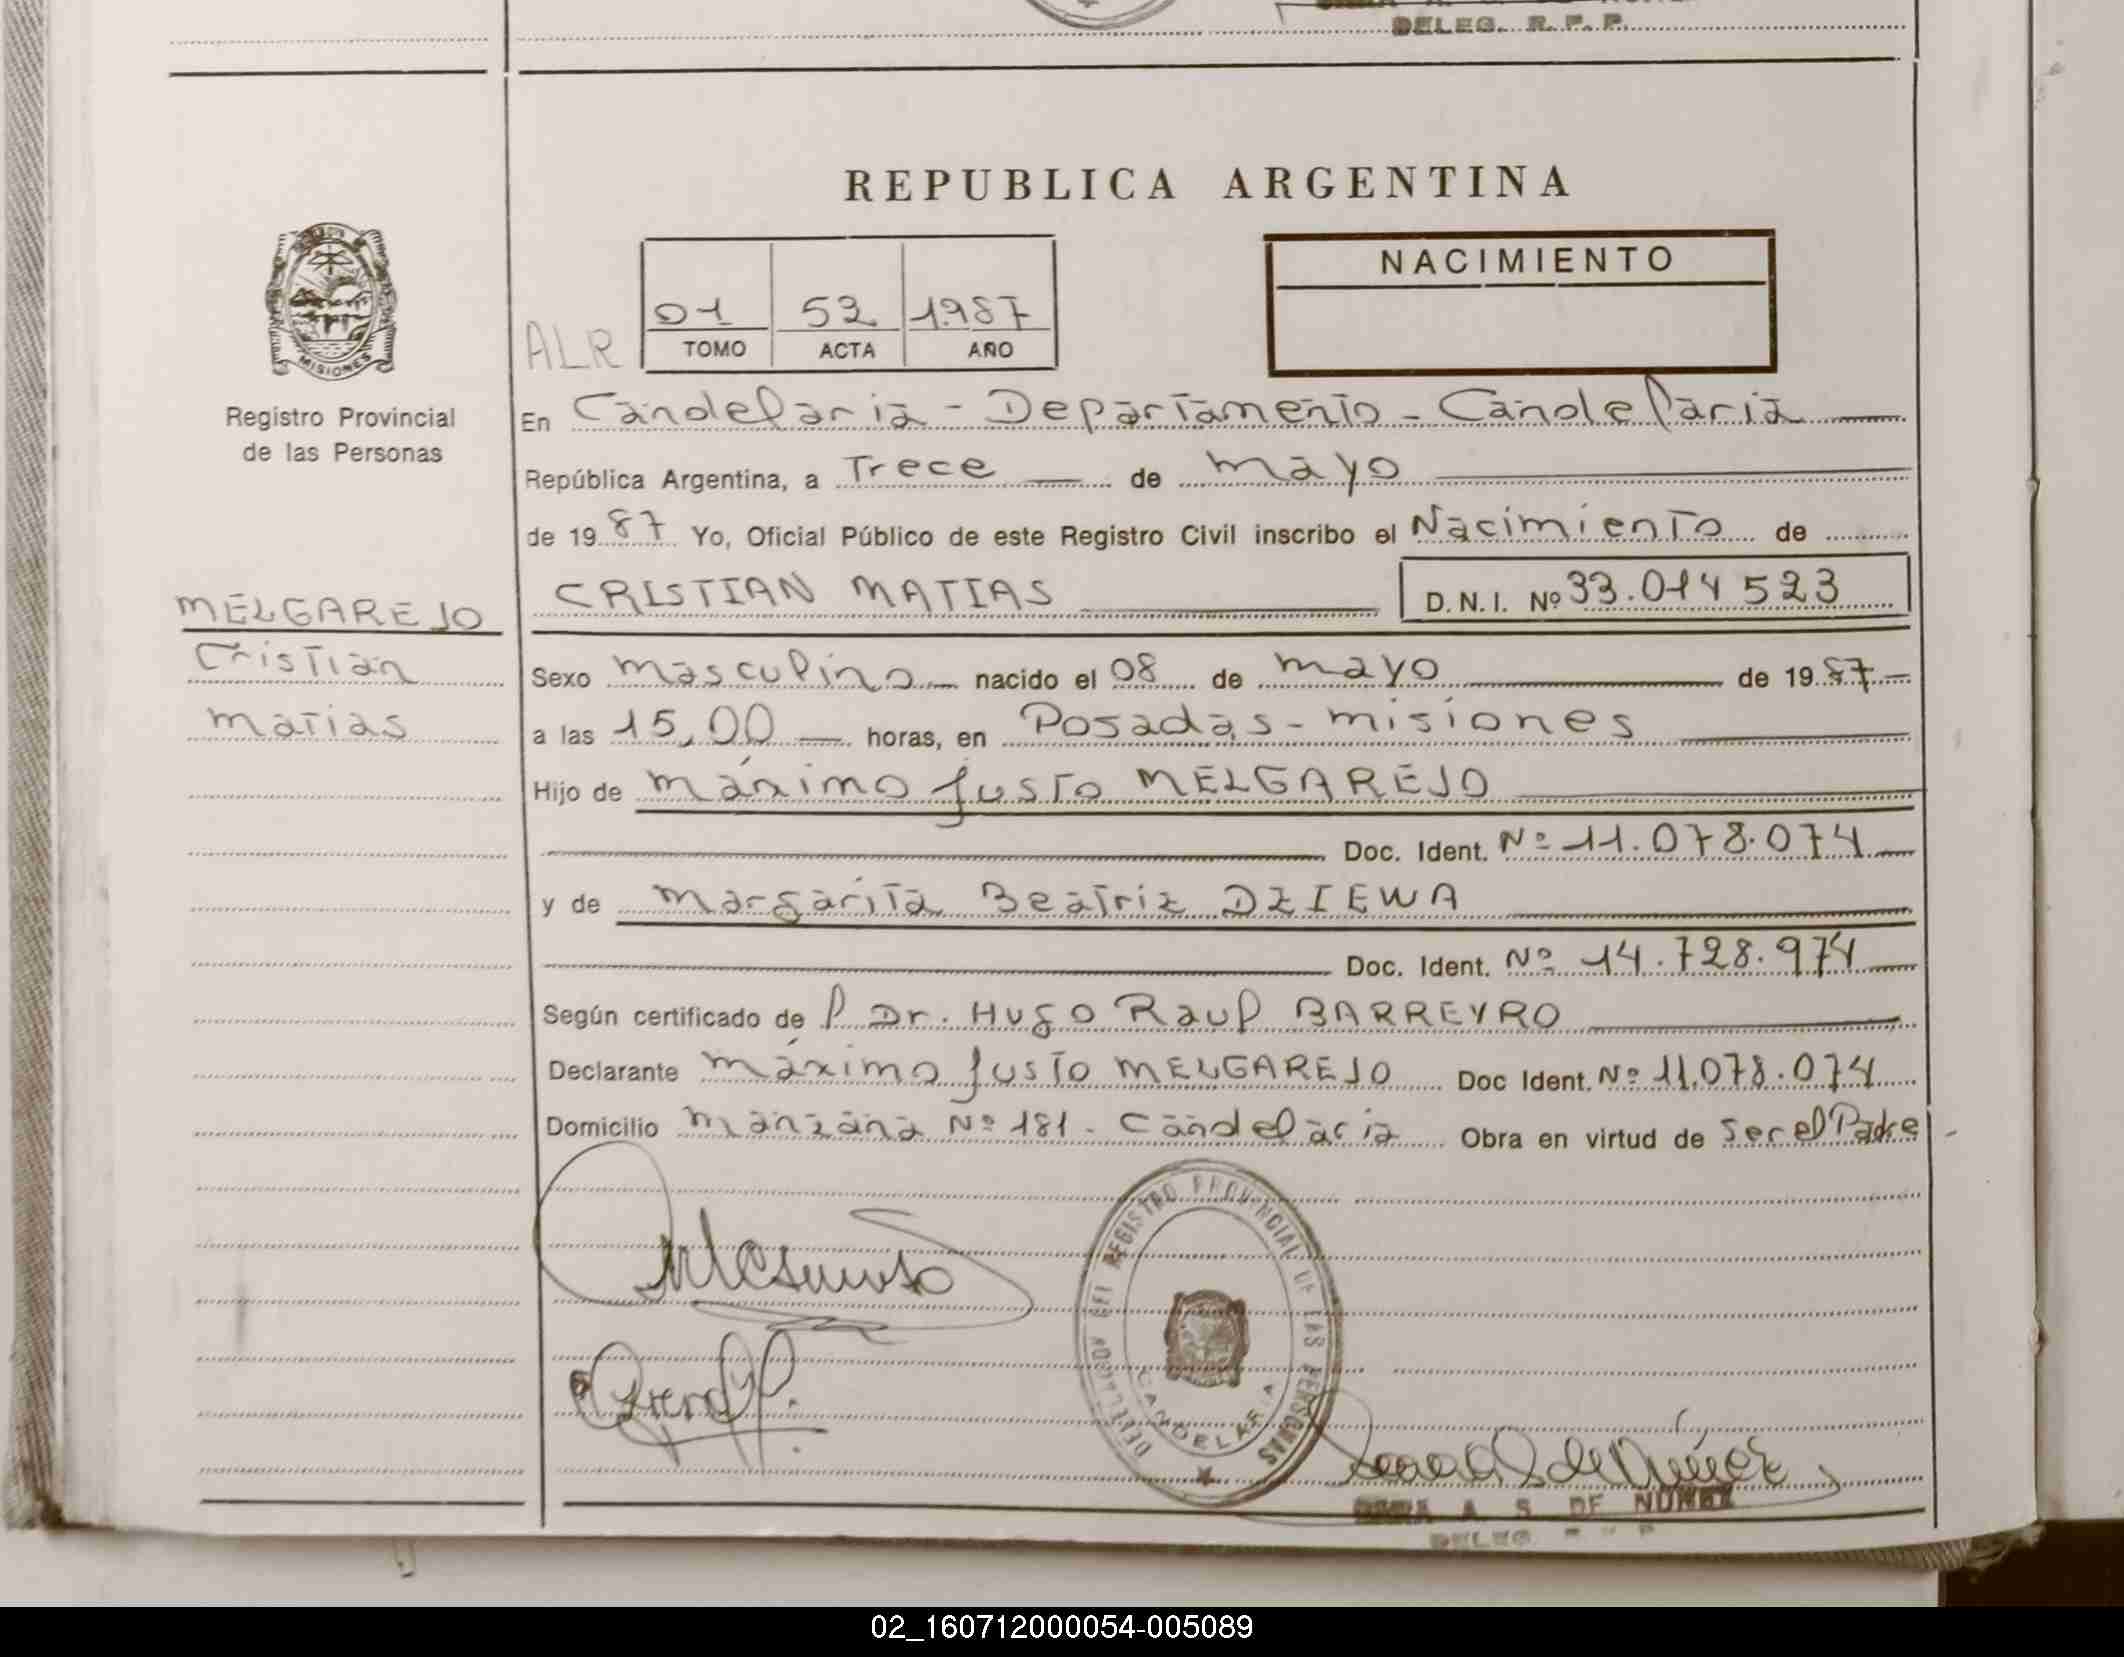 DELEG. R. P. P.
REPUBLICA ARGENTINA
NACIMIENTO
MISIONES
Registro Provincial
de las Personas
ALR
01 53 1987
TOMO ACTA AÑO
En Candelaria - Departamento - Candelaria
República Argentina, a Trece de mayo
de 1987 Yo, Oficial Público de este Registro Civil inscribo el Nacimiento de
MELGAREJO
Cristian
matias
CRISTIAN MATIAS D.N.I. Nº 33.014 523
Sexo masculino nacido el 08 de mayo de 1987
a las 15,00 horas, en Posadas - misiones
Hijo de máximo Justo MELGAREJO
Doc. Ident. Nº 11.078.074
y de Margarita Beatriz DZIEWA
Doc. Ident. Nº 14.728.974
Según certificado de l Dr. Hugo Raul BARREYRO
Declarante máximo Justo MELGAREJO Doc Ident. Nº 11.078.074
Domicilio manzana Nº 181 - Candelaria Obra en virtud de Ser el Padre
REGISTRO PROVINCIAL DE LAS PERSONAS
CANDELARIA
A. S. DE NUÑEZ
DELEG
02_160712000054-005089